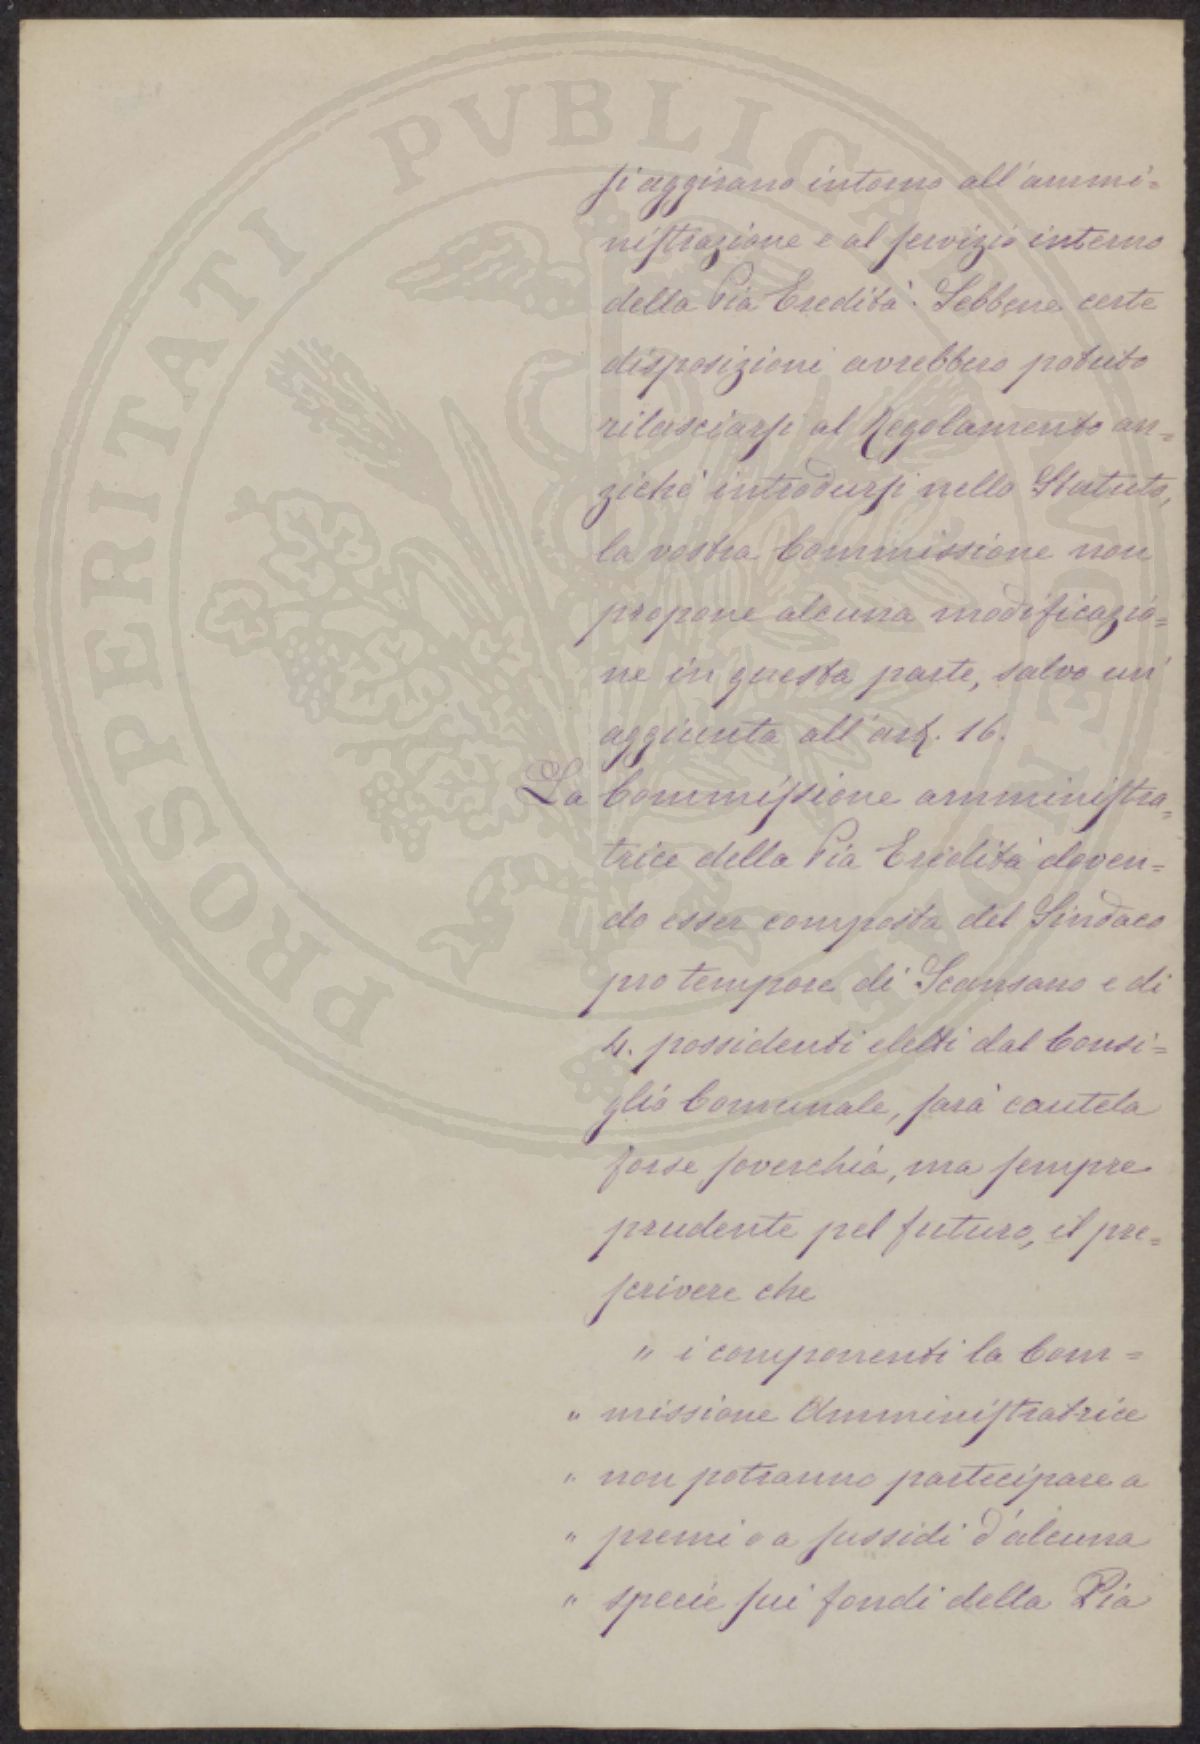 si aggirano intorno all'ammi=
nistrazione e al servizio interno
della Pia Eredità. Sebbene certe
disposizioni avrebbero potuto
rilasciarsi al Regolamento an=
zichè introdursi nello Statuto,
la vostra Commissione non
propone alcuna modificazio=
ne in questa parte, salvo un'
aggiunta all'art. 16.
La Commissione amministra=
trice della Pia Eredità doven=
do esser composta del Sindaco
pro tempore di Scansano e di
4. possidenti eletti dal Consi=
glio Comunale, sarà cautela
forse soverchia, ma sempre
prudente pel futuro, il pre=
scrivere che
" i componenti la Com=
" missione Amministratrice
" non potranno partecipare a
" premi o a sussidi d'alcuna
" specie sui fondi della Pia
PROSPERITATI PVBLICAE